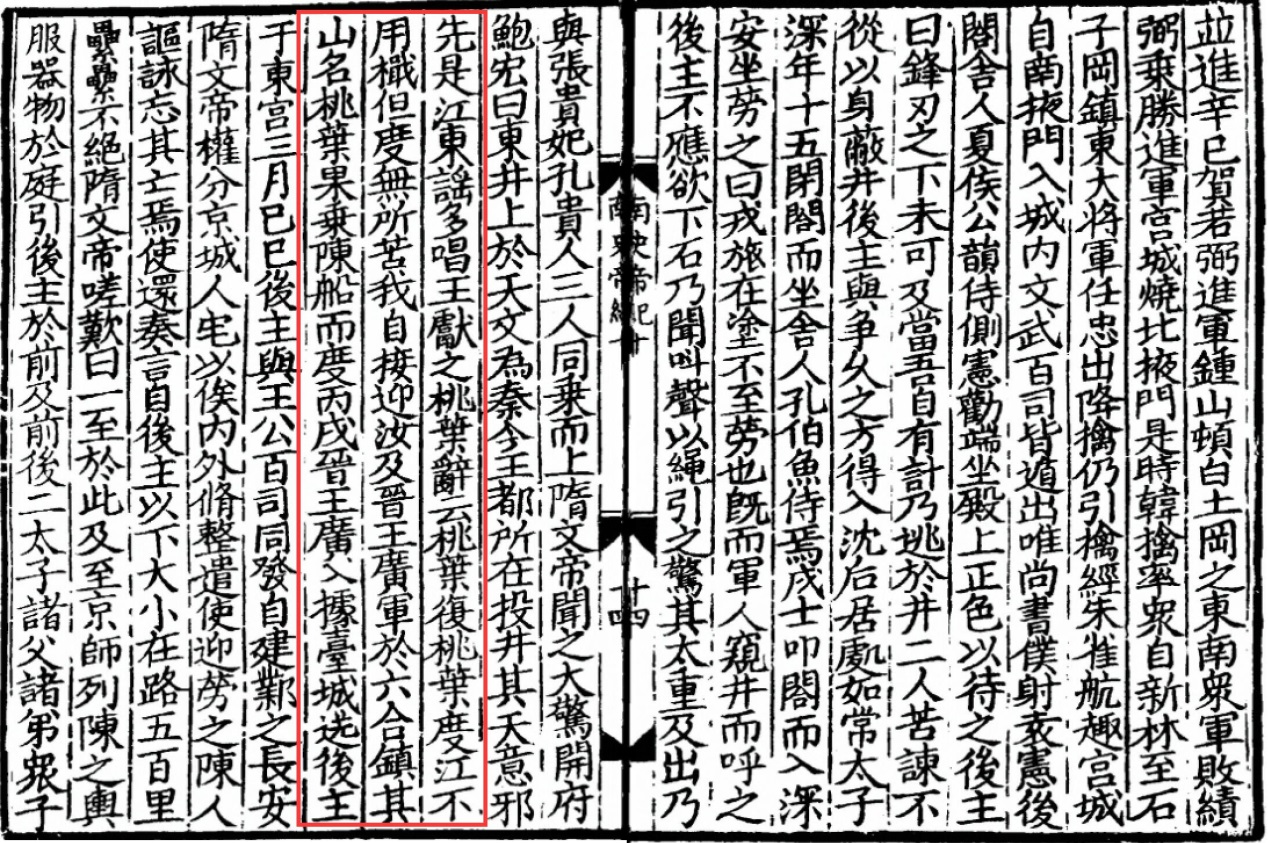 並進辛巳賀若弼進軍鍾山頓白土岡之東南衆軍敗績
弼乗勝進軍宮城燒北掖門是時韓擒率衆自新林至石
子岡鎮東大将軍任忠出降擒仍引擒經朱雀航趣宮城
自南掖門入城内文武百司皆遁出唯尚書僕射袁憲後
閤舎人夏侯公韻侍側憲勸端坐殿上正色以待之後主
曰鋒刃之下未可及當吾自有計乃逃於井二人苦諫不
從以身蔽井後主與争乆之方得入沈后居處如常太子
深年十五閉閤而坐舎人孔伯魚侍焉戍士叩閤而入深
安坐勞之曰戎旅在塗不至勞也既而軍人窺井而呼之
後主不應欲下石乃聞叫聲以繩引之驚其太重及出乃
南史帝紀十
十四
與張貴妃孔貴人三人同乗而上隋文帝聞之大驚開府
鮑宏曰東井上於天文為秦今王都所在投井其天意邪
先是江東謡多唱王獻之桃葉辭云桃葉復桃葉度江不
用檝但度無所苦我自接迎汝及晉王廣軍於六合鎮其
山名桃葉果乗陳船而度丙戌晉王廣入據臺城送後主
于東宮三月己巳後主與王公百司同發自建鄴之長安
隋文帝權分京城人宅以俟内外脩整遣使迎勞之陳人
謳詠忘其亡焉使還奏言自後主以下大小在路五百里
纍纍不絕隋文帝嗟歎曰一至於此及至京師列陳之輿
服器物於庭引後主於前及前後二太子諸父諸弟衆子